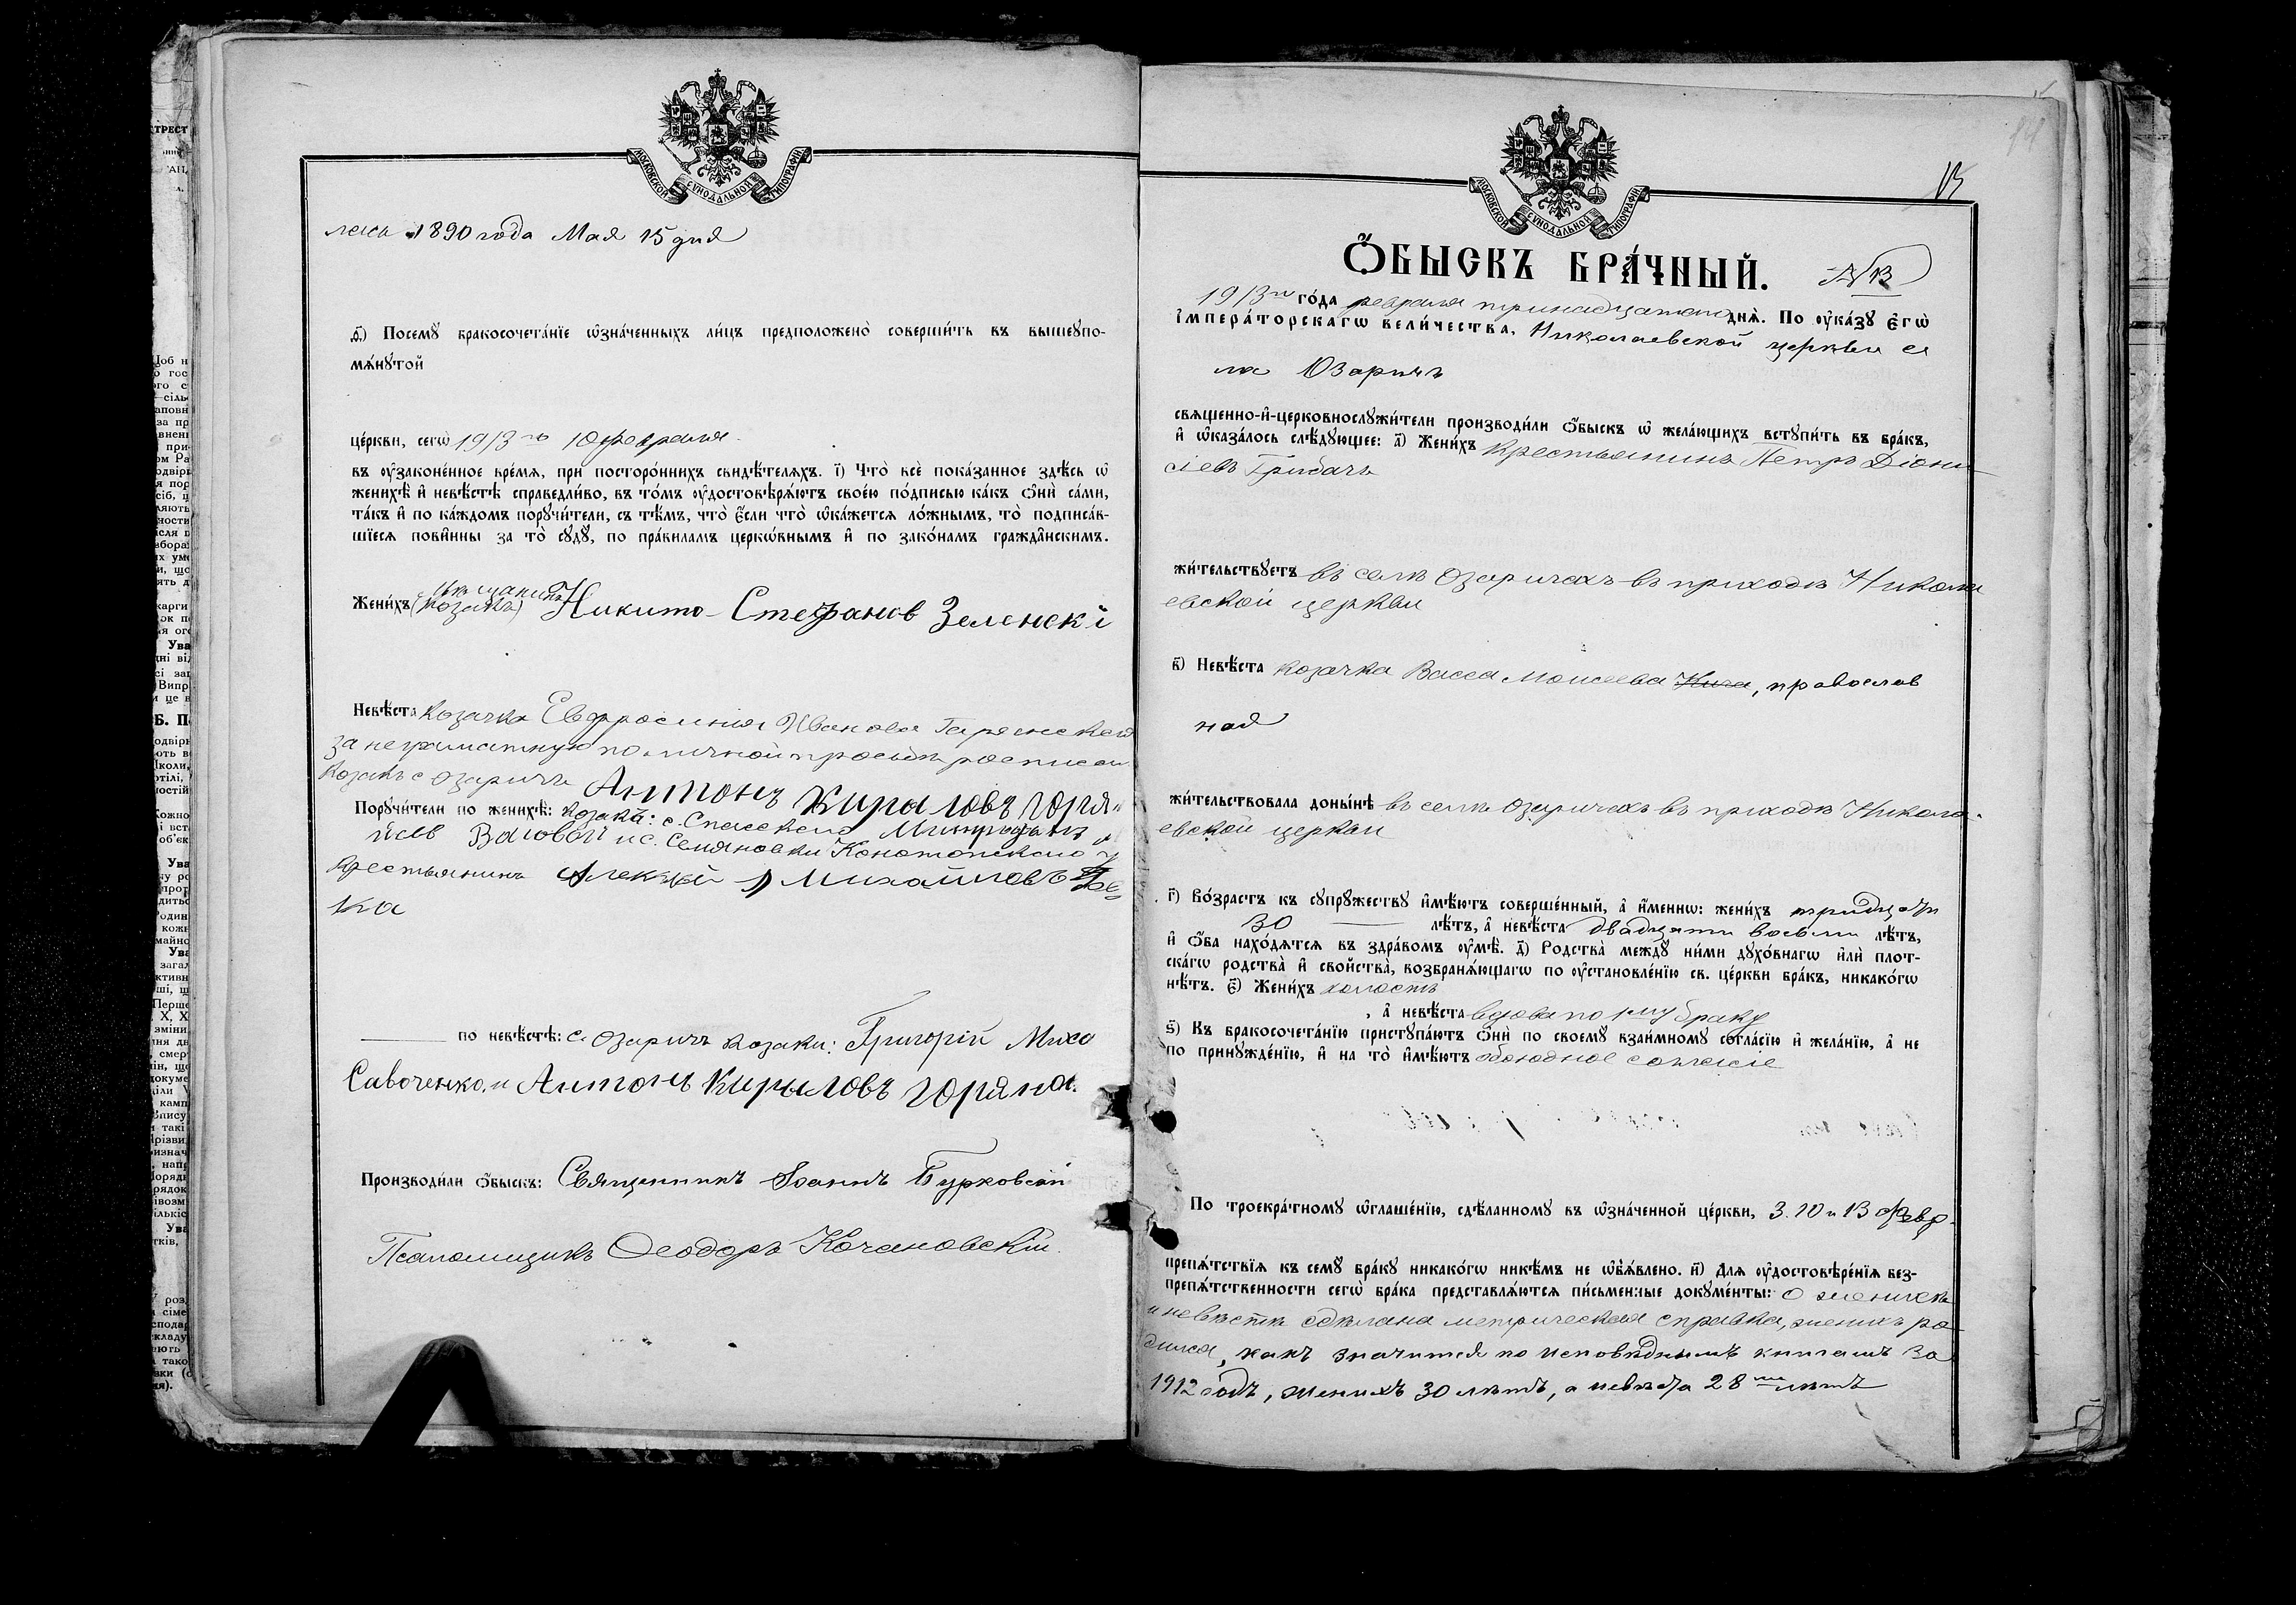 МОСКОВСКОЙ СѴНОДАЛЬНОЙ ТИПОГРАФІИ
лась 1890 года Мая 15 дня
Посемꙋ бракосочета́нїе ѡ҆зна́ченныхъ ли́цъ предположено̀ соверши́ть въ вышеꙋпо-
мѧ́нꙋтой
це́ркви, сегѡ̀ 1913 го 10 февраля
въ ᲂу҆зако́ненное вре́мѧ, при посторо́ннихъ свидѣ́телѧхъ. і҃) Что̀ всѐ пока́занное здѣ́сь ѡ҆
женихѣ̀ и҆ невѣ́стѣ справедли́во, въ то́мъ ᲂу҆достовѣрѧ́ютъ свое́ю по́дписью ка́къ ѻ҆нѝ са́ми,
та́къ и҆ по ка́ждомъ порꙋчи́тели, съ тѣ́мъ, что̀ є҆́сли что̀ ѡ҆ка́жетсѧ ло́жнымъ, то̀ подписа́в-
шїесѧ пови́нны за то̀ сꙋдꙋ̀, по пра́виламъ церко́внымъ и҆ по зако́намъ гражда́нскимъ.
Жени́хъ (козакъ) Никита Стефанов Зеленскі
Невѣ́ста козачка Евфросинія Иванова Горянская
за неграматную по личной просьбѣ росписал
козакъ с Озаричъ Антонъ Кирыловъ Горя-
Порꙋчи́тели по женихѣ̀: козакъ: с. Спасскаго Митрофанъ
Ваговой и с. Семяновки Конотопскаго у
крестьянинъ Алексѣй Михайловъ
ка
по невѣ́стѣ: с. Озаричъ козаки: Григорій Миха
Савоченко, и Антонъ Кирыловъ Горяной.
Производи́ли ѻ҆́быскъ: Священникъ Іоаннъ Бурковскій
Псаломщикъ Ѳеодоръ Кочановскій.
МОСКОВСКОЙ СѴНОДАЛЬНОЙ ТИПОГРАФІИ
Ѻ҆́БЫСКЪ БРА́ЧНЫЙ. № 13
1913 го го́да февраля тринадцатаго днѧ̀. По ᲂу҆ка́зꙋ є҆гѡ̀
і҆мпера́торскагѡ вели́чества, Николаевской церкви се
ла Озаричъ
свѧщенно-и҆-церковнослꙋжи́тели производи́ли ѻ҆́быскъ ѡ҆ жела́ющихъ встꙋпи́ть въ бра́къ,
и҆ ѡ҆каза́лось слѣ́дꙋющее: а҃) Жени́хъ Крестьянинъ Петръ Діони
сіевъ Грибачъ
жи́тельствꙋетъ въ селѣ Озаричахъ въ приходѣ Никола
евской церкви
в҃) Невѣ́ста козачка Васса Моисеева, православ
ная
жи́тельствовала доны́нѣ въ селѣ Озаричахъ въ приходѣ Никола-
евской церкви
г҃) Во́зрастъ къ сꙋпрꙋ́жествꙋ и҆мѣ́ютъ соверше́нный, а҆ и҆́меннѡ: жени́хъ тридцати
30 лѣ́тъ, а҆ невѣ́ста двадцати восьми лѣ́тъ,
и҆ ѻ҆́ба нахо́дѧтсѧ въ здра́вомъ ᲂу҆мѣ̀. д҃) Родства̀ междꙋ̀ ни́ми дꙋхо́внагѡ и҆лѝ плот-
ска́гѡ родства̀ и҆ свойства̀, возбранѧ́ющагѡ по ᲂу҆становле́нїю св. це́ркви бра́къ, никако́гѡ
нѣ́тъ. є҃) Жени́хъ холостъ
, а҆ невѣ́ста вдова по 1 му браку
ѕ҃) Къ бракосочета́нїю пристꙋпа́ютъ ѻ҆нѝ по своемꙋ̀ взаи́мномꙋ согла́сїю и҆ жела́нїю, а҆ не
по принꙋжде́нїю, и҆ на то̀ и҆мѣ́ютъ обоюдное согласіе
По троекра́тномꙋ ѡ҆глаше́нїю, сдѣ́ланномꙋ въ ѡ҆зна́ченной це́ркви, 3. 10 и 13 февр.
препѧ́тствїѧ къ семꙋ̀ бра́кꙋ никако́гѡ никѣ́мъ не ѡ҆б̾ѧ́влено. и҃) Длѧ ᲂу҆достовѣре́нїѧ без-
препѧ́тственности сегѡ̀ бра́ка представлѧ́ютсѧ пи́сьменные докꙋме́нты: О женихѣ
и невѣстѣ сдѣлана метрическая справка, женихъ ро
дился, какъ значится по исповѣднымъ книгамъ за
1912 годъ, женихъ 30 лѣтъ, а невѣста 28 ми лѣтъ